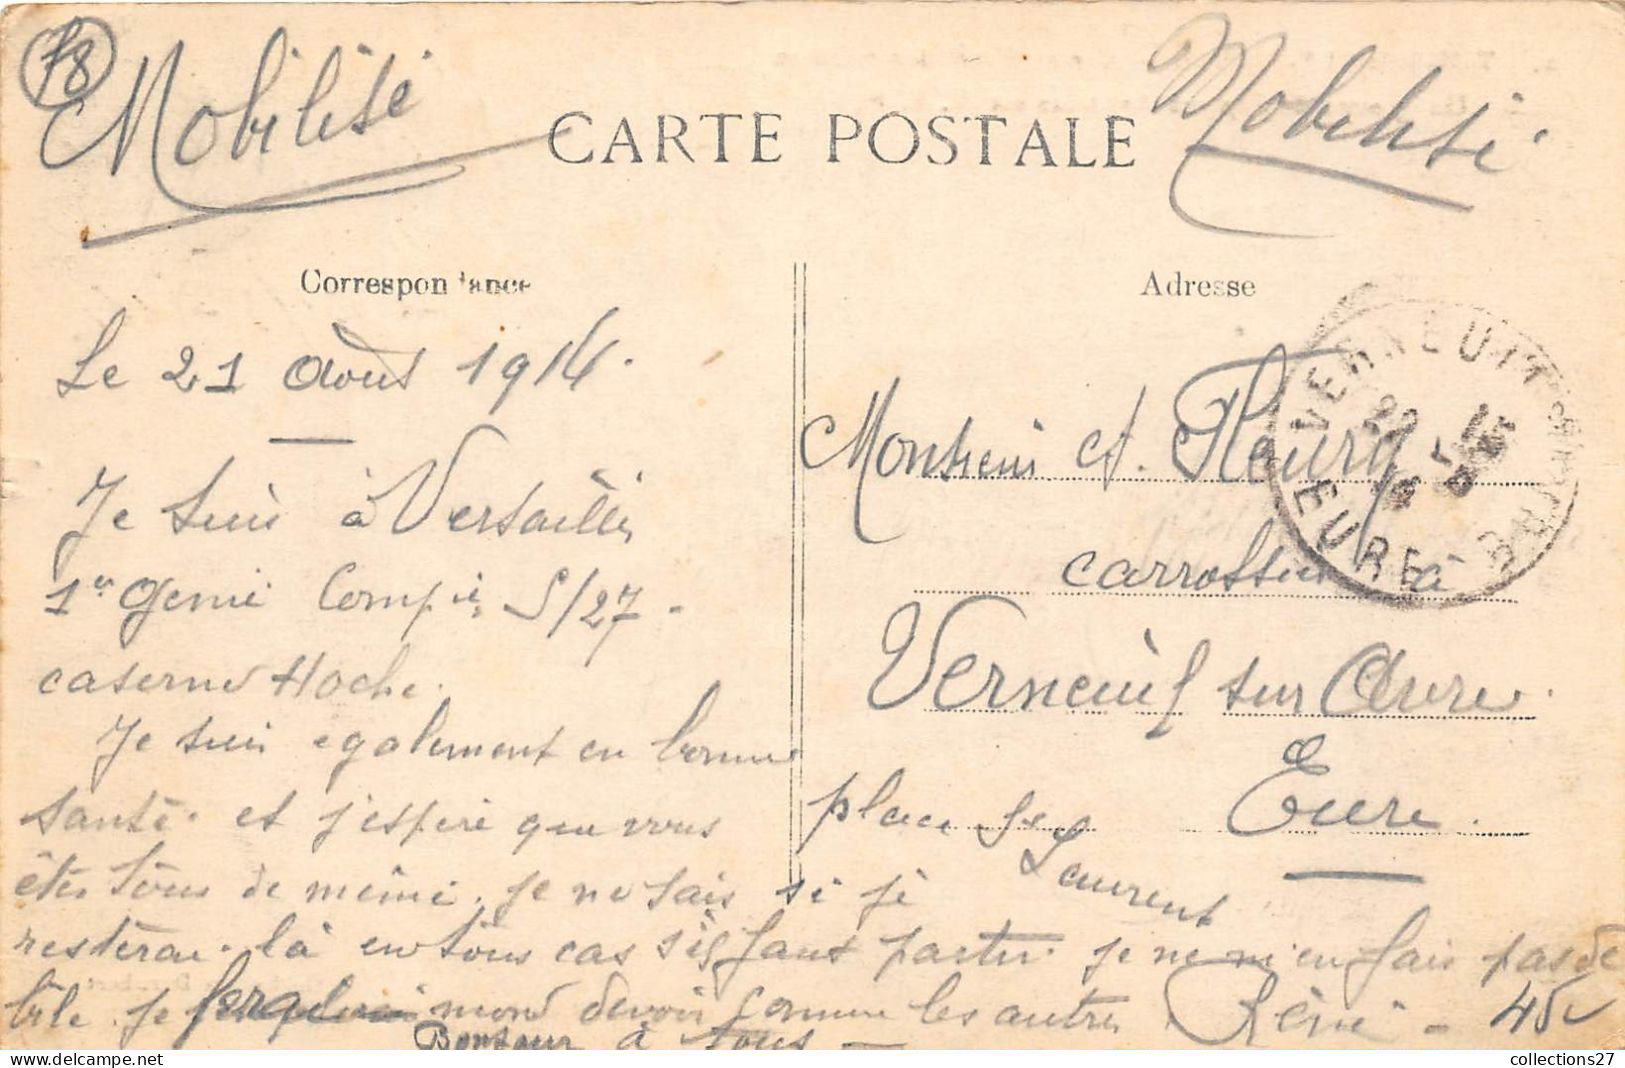 78
Mobilisé
CARTE POSTALE
Mobilisé
Correspondance
Le 21 Août 1914.
Je suis à Versailles
1er Génie Compie S/27.
caserne Hoche.
Je suis egalement en bonne
santé. et j'espère que vous
êtes tous de même. Je ne sais si je
resterai là en tous cas s'il faut partir je ne m'en fais pas de
bile. Je ferai mon devoir comme les autres René
Bonjour à tous
Adresse
Monsieur A. Fleury
carrossier à
Verneuil sur Avre.
Eure.
place St
Laurent
VERNEUIL
EURE
22
14
45
collections27